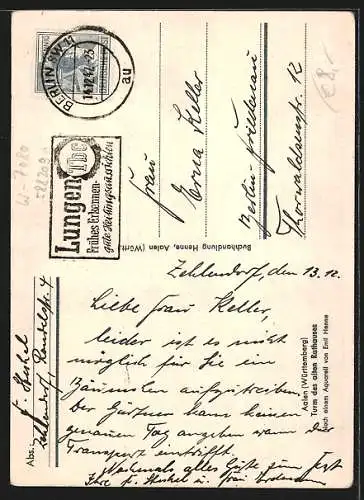 BERLIN SW 11
14.12.42-23
au
Lungen Tbc
Frühes Erkennen-
gute Heilungsaussichten
W-7080
€ 8,-
Frau
Erna Keller
Berlin-Friedenau
Thorwaldsenstr. 12
Buchhandlung Henne, Aalen (Württ.
Zehlendorf, den 13.12.
Liebe Frau Keller,
leider ist es nicht
möglich für Sie ein
Bäumchen aufzutreiben.
Der Gärtner kann keinen
genauen Tag angeben wann der
Transport eintrifft.
Nochmals alles Gute zum Fest
Ihre
Aalen (Württemberg)
Turm des alten Rathauses
Nach einem Aquarell von Emil Henne
Abs.:
Zehlendorf